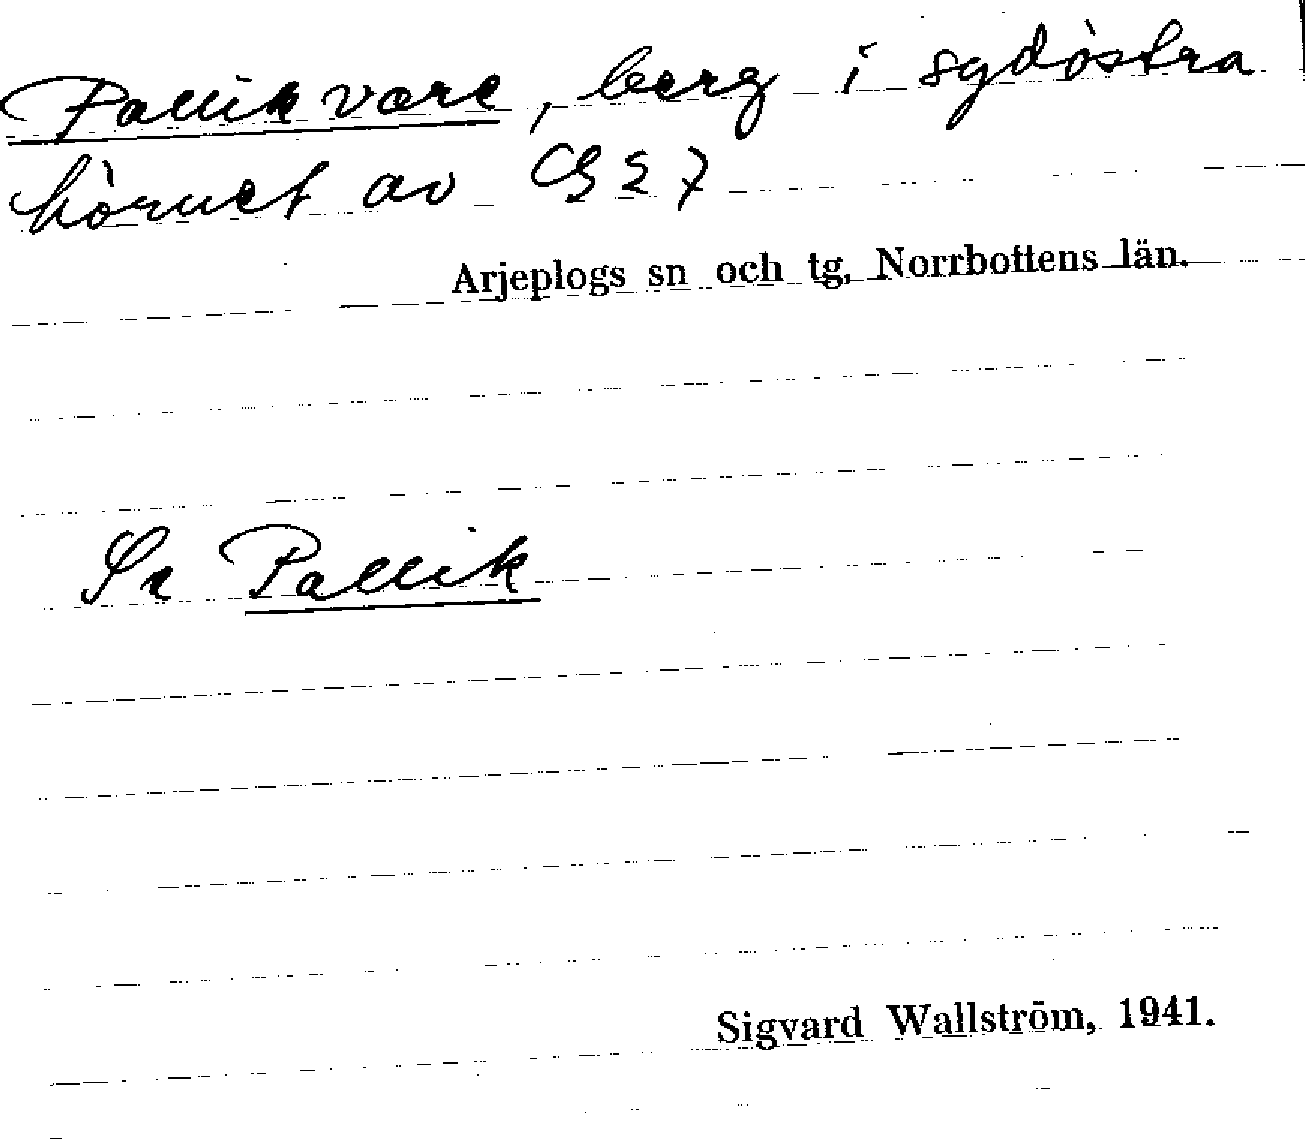 Pallikvare, berg i sydöstra
hörnet av G 27
Arjeplogs sn och tg, Norrbottens län.
Se Pallik
Sigvard Wallström, 1941.